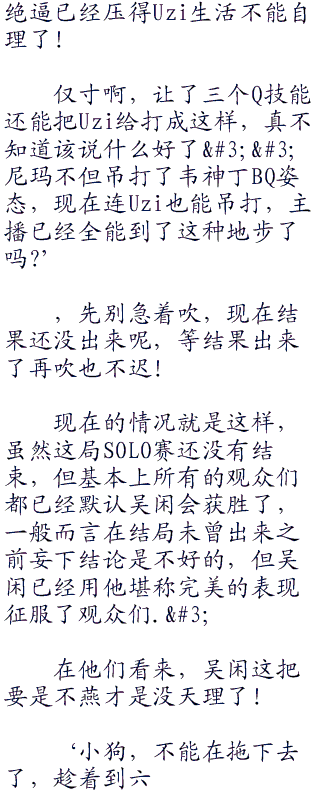 绝逼已经压得Uzi生活不能自
理了！
仅寸啊，让了三个Q技能
还能把Uzi给打成这样，真不
知道该说什么好了&#3;&#3;
尼玛不但吊打了韦神丁BQ姿
态，现在连Uzi也能吊打，主
播已经全能到了这种地步了
吗?’
，先别急着吹，现在结
果还没出来呢，等结果出来
了再吹也不迟！
现在的情况就是这样，
虽然这局SOLO赛还没有结
束，但基本上所有的观众们
都已经默认吴闲会获胜了，
一般而言在结局未曾出来之
前妄下结论是不好的，但吴
闲已经用他堪称完美的表现
征服了观众们.&#3;
在他们看来，吴闲这把
要是不燕才是没天理了！
‘小狗，不能在拖下去
了，趁着到六